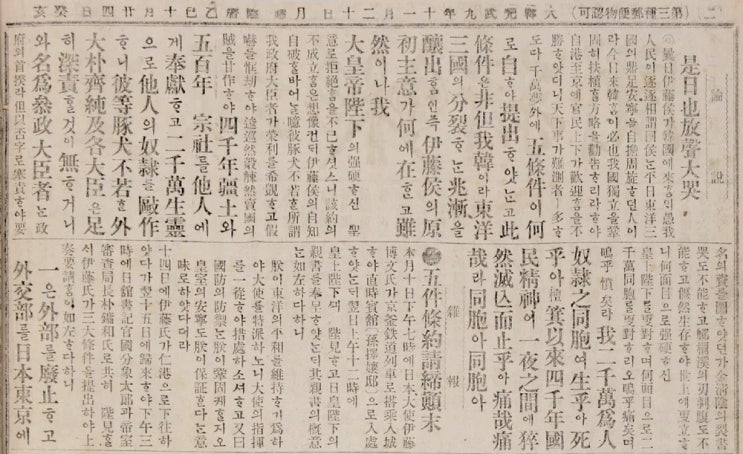 (二) (第三種郵便物認可) 大韓光武九年十一月二十日 月曜 陰曆乙巳十月廿四日癸亥
論說
是日也放聲大哭
◎曩日伊藤侯가韓國에來홈이愚我
人民이逐逐相謂曰侯는平日東洋三
國의鼎足安寧을自擔周旋ᄒᆞ던人이
라今日來韓홈이必也我國獨立을鞏
固히扶植ᄒᆞᆯ方略을勸告ᄒᆞ리라ᄒᆞ야
自港至京에官民上下가歡迎홈을不
勝ᄒᆞ얏더니天下事가難測者ㅣ多ᄒᆞ
도다千萬夢外에五條件이何
로自ᄒᆞ야提出ᄒᆞ얏ᄂᆞᆫ고此
條件은非但我韓이라東洋
三國의分裂ᄒᆞᄂᆞᆫ兆漸을
釀出홈인즉伊藤侯의原
初主意가何에在ᄒᆞᆫ고雖
然이나我
大皇帝陛下의强硬ᄒᆞ신 聖
意로拒絕홈을不已ᄒᆞ셧스니該約의
不成立홈은想像컨ᄃᆡ伊藤侯의自知
自破ᄒᆞᆯ바어ᄂᆞᆯ噫彼豚犬不若ᄒᆞᆫ所謂
我政府大臣者가榮利를希覬ᄒᆞ고假
嚇를恇刼ᄒᆞ야逡巡然觳觫然賣國의
賊을甘作ᄒᆞ야四千年疆土와
五百年 宗社를他人에
게奉獻ᄒᆞ고二千萬生靈
으로他人의奴隸를敺作
ᄒᆞ니彼等豚犬不若ᄒᆞᆫ外
大朴齊純及各大臣은足
히深責ᄒᆞᆯ것이無ᄒᆞ거니
와名爲叅政大臣者ᄂᆞᆫ政
府의首揆라但以否字로塞責ᄒᆞ야要
名의資를圖ᄒᆞ얏던가金淸陰의裂書
哭도不能ᄒᆞ고鄭桐溪의刃剚腹도不
能ᄒᆞ고偃然生存ᄒᆞ야世上에更立ᄒᆞ
니何面目으로强硬ᄒᆞ신
皇上陛下를更對ᄒᆞ며何面目으로二
千萬同胞를更對ᄒᆞ리오嗚乎痛矣며
嗚乎憤矣라我二千萬爲人
奴隸之同胞여生乎아死
乎아檀箕以來四千年國
民精神이一夜之間에猝
然滅亡而止乎아痛哉痛
哉라同胞아同胞아
雜報
●五件條約請締顚末
本月十日下午七時에日本大使伊藤
博文氏가京釜鐵道列車로搭乘入城
ᄒᆞ야直時賓館(孫擇孃邸)으로入處
ᄒᆞ얏ᄂᆞᆫᄃᆡ翌日下午十二時에
皇上陛下ᄭᅴ 陛見ᄒᆞ고日皇陛下의
親書를奉呈ᄒᆞ얏ᄂᆞᆫᄃᆡ其親書의槪意
ᄂᆞᆫ如左ᄒᆞ다ᄒᆞ니
朕이東洋의平和를維持ᄒᆞ기爲ᄒᆞ
야大使를特派ᄒᆞ노니大使의指揮
를一從ᄒᆞ야措處ᄒᆞ소셔ᄒᆞ고又曰
國防의防禦ᄂᆞᆫ朕이鞏固케ᄒᆞᆯ지오
皇室의安寧도朕이保證ᄒᆞᆫ다ᄂᆞᆫ意
味로ᄒᆞ얏다더라
十四日에伊藤氏가仁港으로下往ᄒᆞ
얏다가翌十五日에歸來ᄒᆞ야下午三
時에日舘書記官國分象太郎과帝室
審査局長長鍋和氏로共히 陛見ᄒᆞᆯ
ᄉᆡ伊藤氏가三大條件을提出ᄒᆞ야上
奏要請홈이如左ᄒᆞ다ᄒᆞ니
一은外部를廢止ᄒᆞ고
外交部를日本東京에